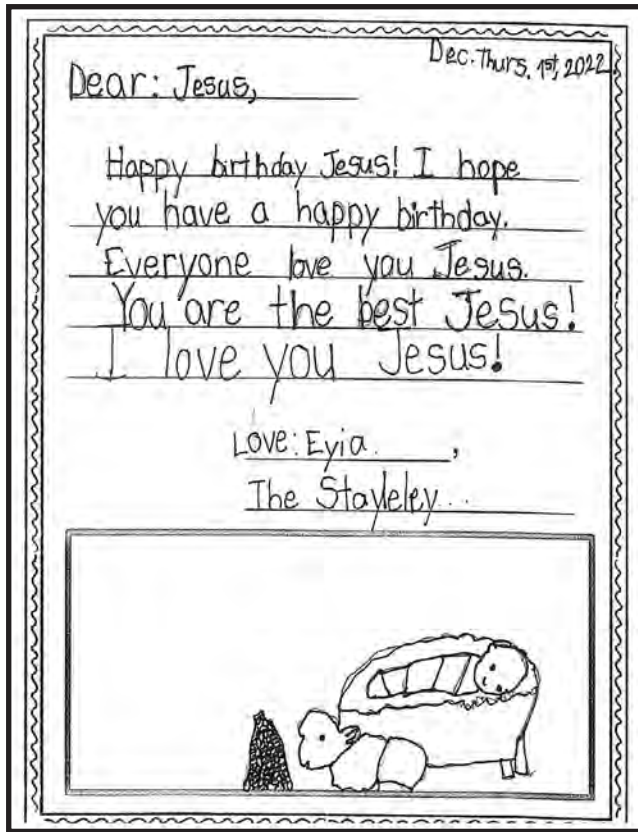 Dec. Thurs. 1st, 2022
Dear: Jesus,
Happy birthday Jesus! I hope
you have a happy birthday.
Everyone love you Jesus.
You are the best Jesus!
I love you Jesus!
Love: Eyia,
The Stayleley